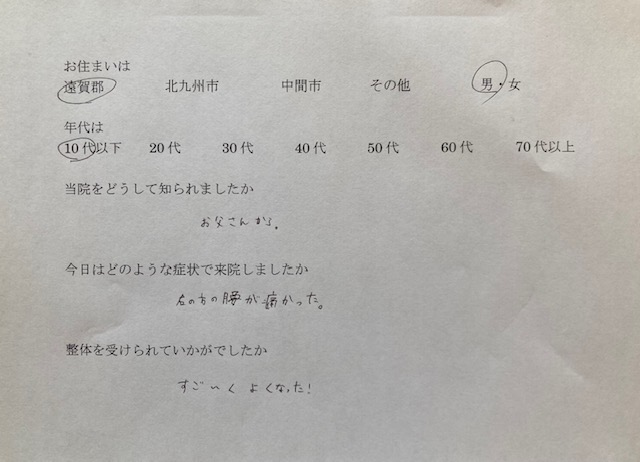 お住まいは
遠賀郡 北九州市 中間市 その他 男・女
年代は
10代以下 20代 30代 40代 50代 60代 70代以上
当院をどうして知られましたか
お父さんから。
今日はどのような症状で来院しましたか
右の方の腰が痛かった。
整体を受けられていかがでしたか
すごいくよくなった!